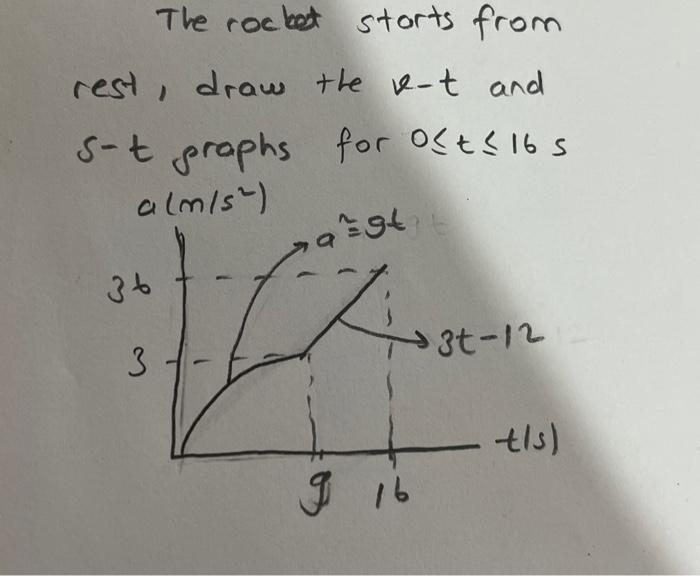 The rocket starts from
rest, draw the v-t and
s-t graphs for 0≤t≤16 s
a(m/s²)
a²=9t
36
3t-12
3
t(s)
9 16